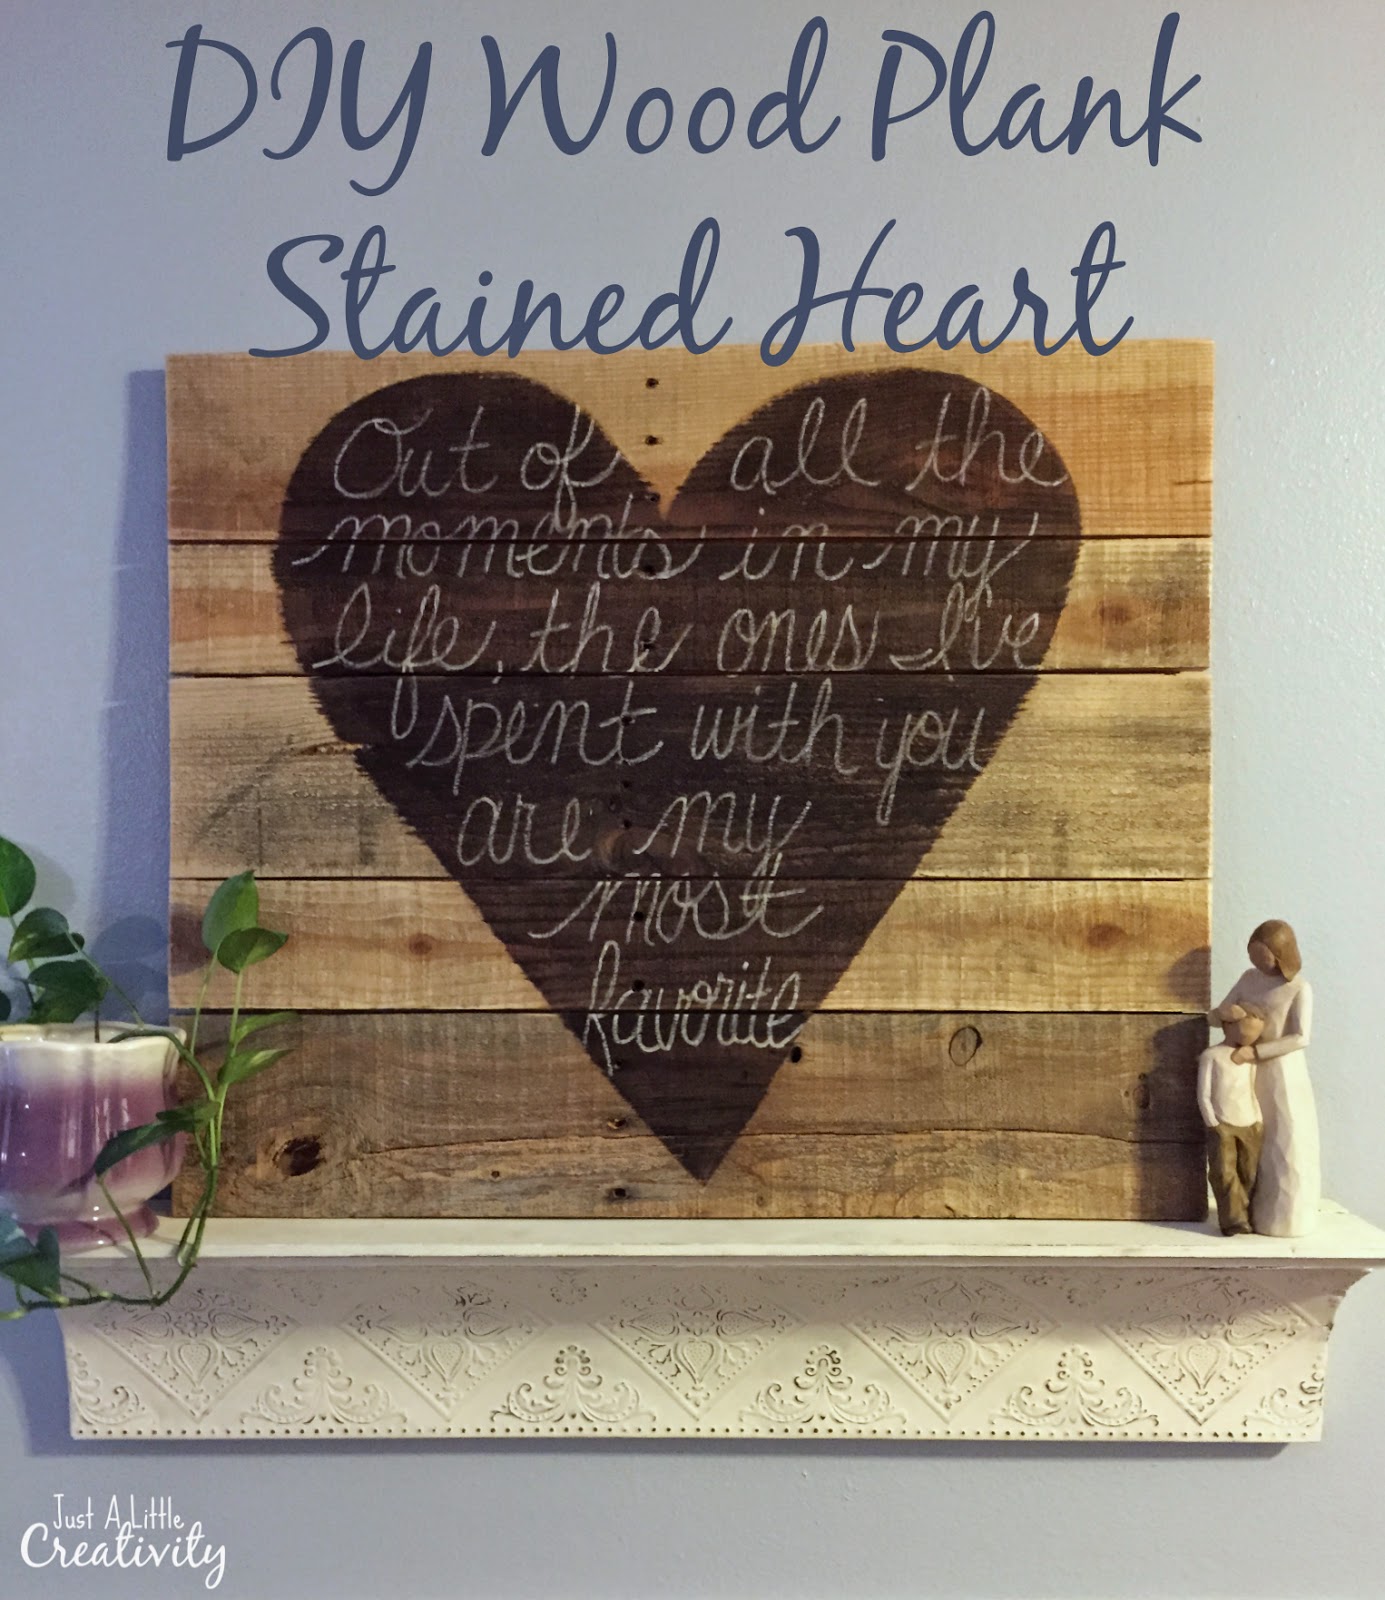 DIY Wood Plank
Stained Heart
Out of all the
moments in my
life, the ones I've
spent with you
are my
most
favorite
Just A Little
Creativity